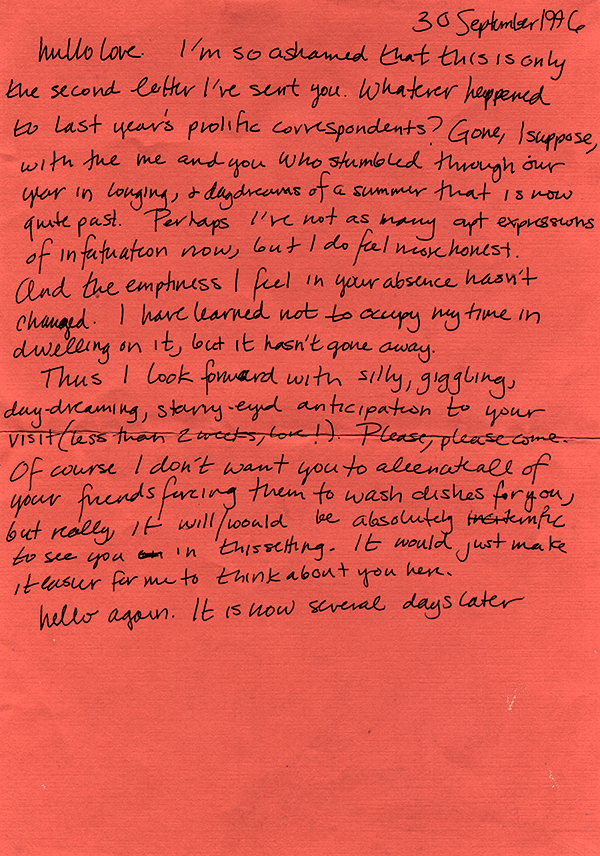 30 September 1996
hullo love. I'm so ashamed that this is only
the second letter I've sent you. Whatever happened
to last year's prolific correspondents? Gone, I suppose,
with the me and you who stumbled through our
year in longing, & daydreams of a summer that is now
quite past. Perhaps I've not as many apt expressions
of infatuation now, but I do feel more honest.
And the emptiness I feel in your absence hasn't
changed. I have learned not to occupy my time in
dwelling on it, but it hasn't gone away.
Thus I look forward with silly, giggling,
day-dreaming, starry-eyed anticipation to your
visit (less than 2 weeks, love!). Please, please come.
Of course I don't want you to alienate all of
your friends forcing them to wash dishes for you,
but really it will/would be absolutely terrific
to see you in this setting. It would just make
it easier for me to think about you here.
hello again. It is now several days later